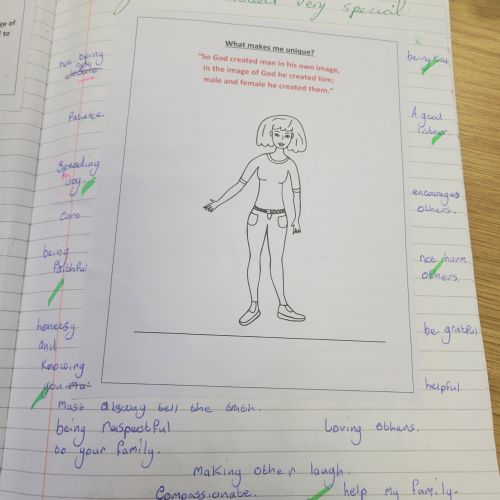 very special.
ge of
d to
What makes me unique?
"So God created man in his own image,
in the image of God he created him;
male and female he created them."
not being
being kind.
Patience.
A good
listner.
Spreading
Joy.
encourages
others.
Care
being
faithful
not harm
others.
honetsy
and
Knowing
you
be grateful
helpful
must alsway tell the truth.
being respectful
to your family.
loving others.
making other laugh.
Compassionate.
help my family.